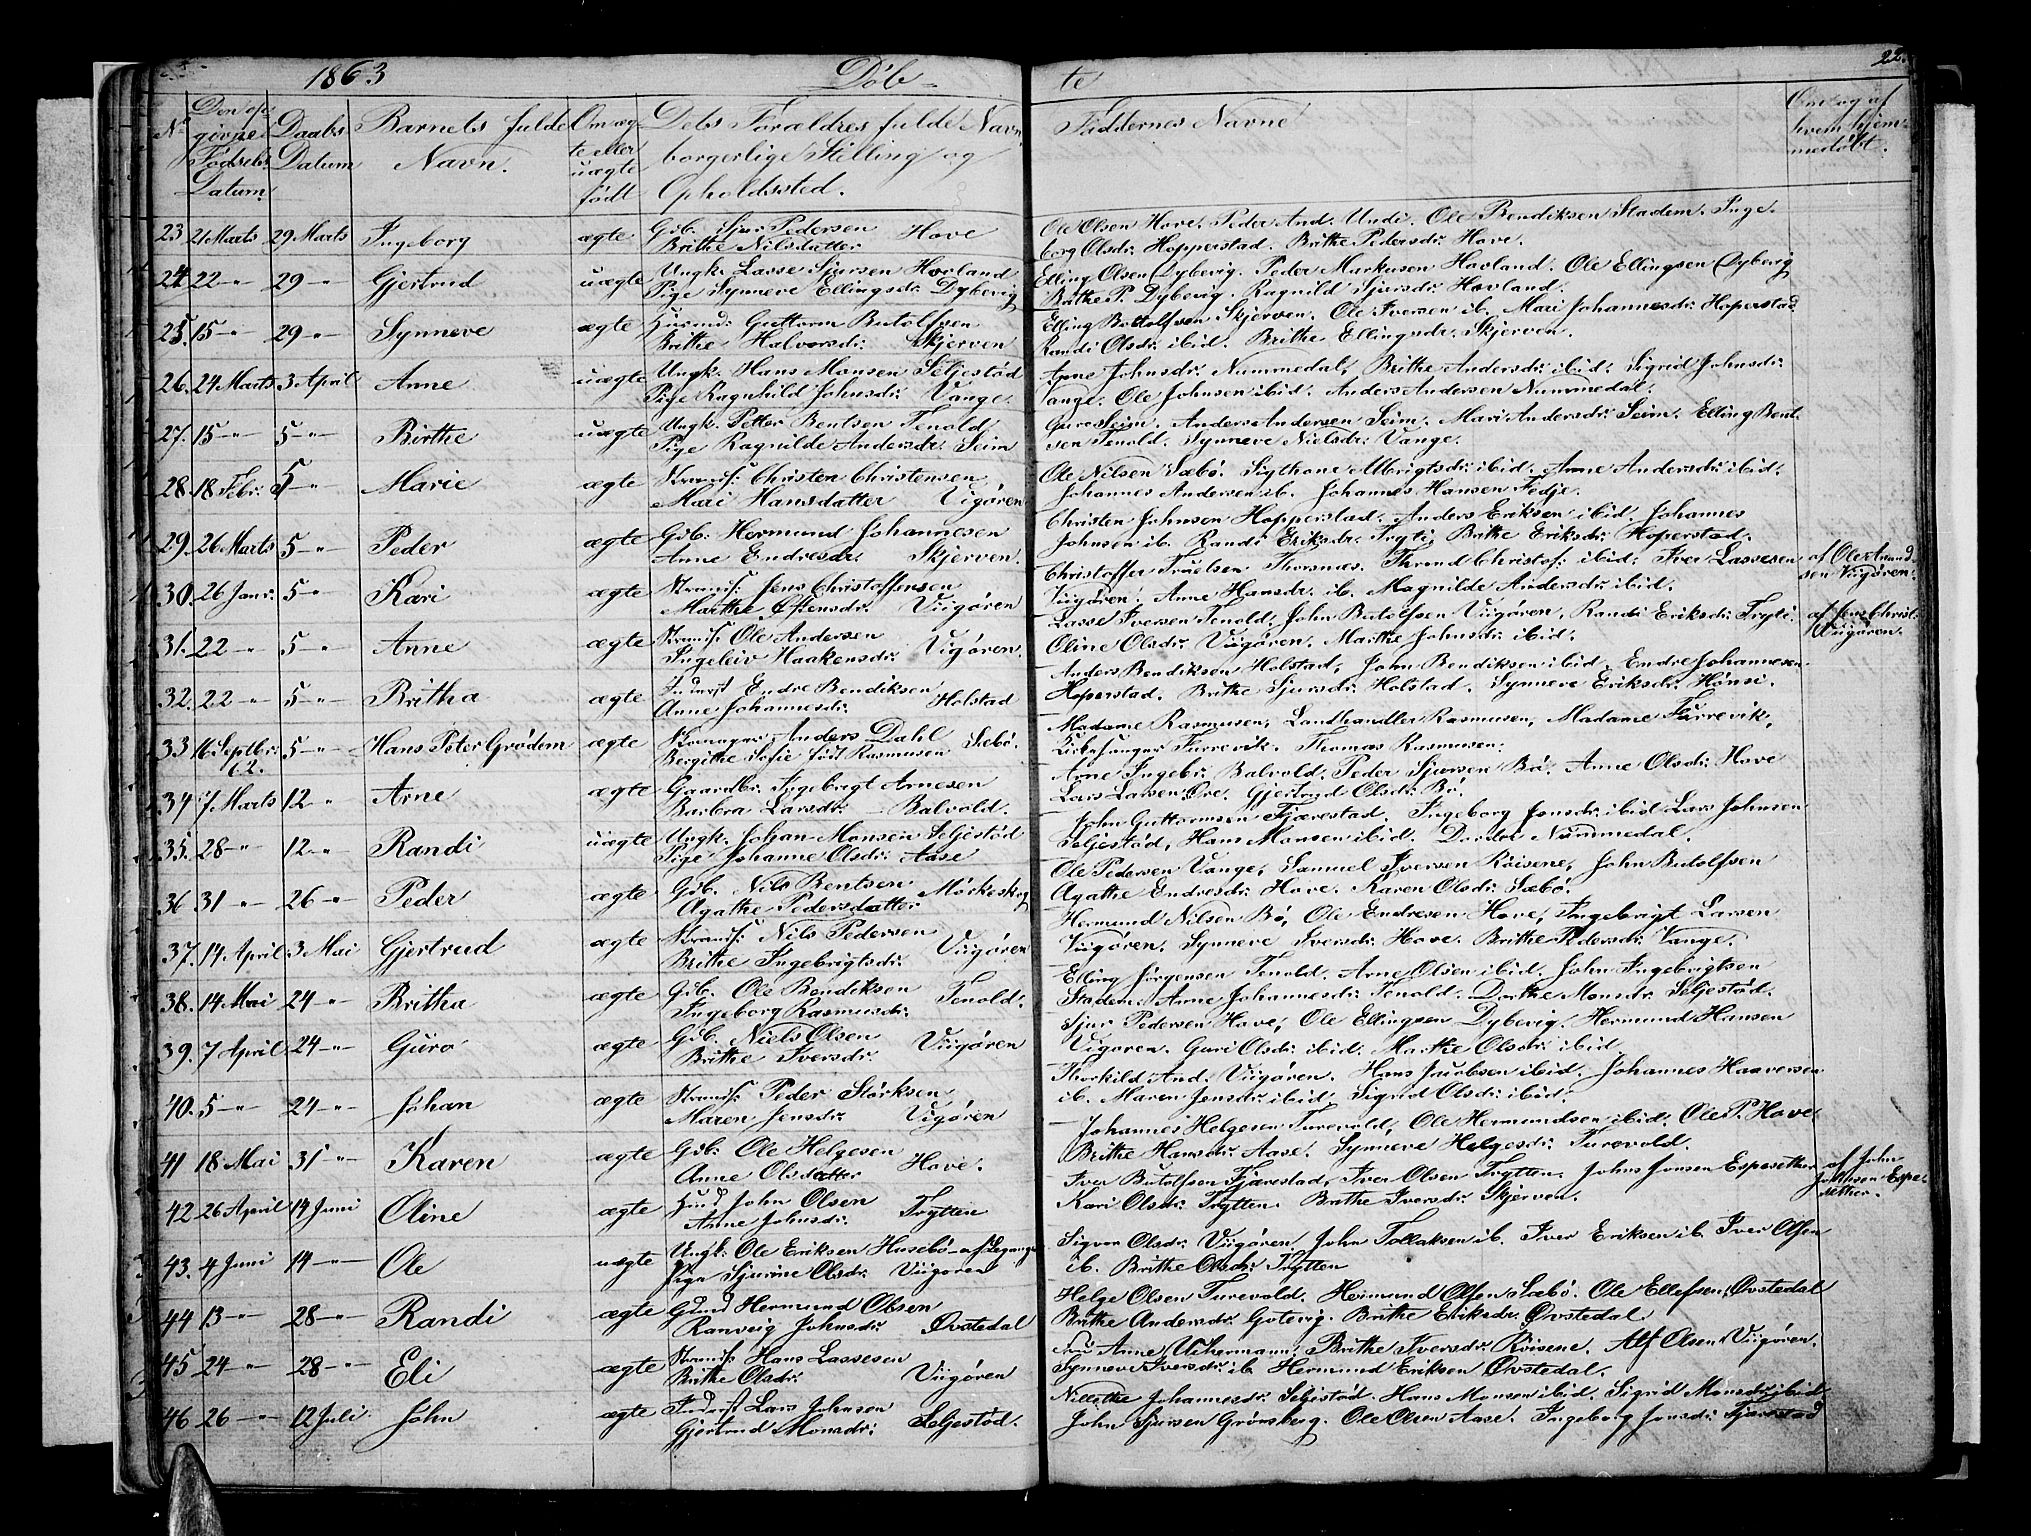 1863 Döb-
te
22.
No
Den op-
givne
Födsels
Datum
Daabs
Datum
Barnets fulde
Navn.
Om æg-
te eller
uægte
födt
Dets Forældres fulde Navn
borgerlige Stilling og
Opholdssted.
Faddernes Navne
Om og af
hvem hjem-
medöbt.
23 21 Marts 29 Marts Ingeborg ægte Gsb. Sjur Pedersen Hove
Brithe Nilsdatter
Ole Olsen Hove. Peder And. Undi. Ole Bendiksen Stadem. Inge-
borg Olsdr: Hopperstad. Brithe Pedersdr: Hove.
24 22 -"- 29 -"- Gjertrud uægte Ungk. Lasse Sjursen Hovland
Pige Synneve Ellingsdr: Dybevig
Elling Olsen Dybevig. Peder Markusen Hovland. Ole Ellingsen Dybevig
Brithe P. Dybevig. Ragnild Sjursdr: Hovland.
25. 15 -"- 29 -"- Synneve ægte Husmd: Guttorm Butolfsen
Brithe Halvorsdr: Skjerven
Elling Bottolfsen Skjerven. Ole Iversen ib. Mari Johannesdr: Hoperstad
Randi Olsdr: ibid. Brithe Ellingsdr. Skjerven.
26. 24 Marts 3 April Anne uægte Ungk: Hans Monsen Seljestöd
Pige Ragnhild Johnsdr: Vange.
Anne Johnsdr: Nummedal, Brithe Andersdr: ibid. Sigrid Johnsdr:
Vange. Ole Johnsen ibid. Anders Andersen Nummedal.
27. 15 -"- 5 -"- Birthe uægte Ungk. Petter Bentsen Tenold
Pige Ragnilde Andersdr. Seim
Guro Seim. Anders Andersen Seim. Mari Andersdr: Seim. Elling Bent-
sen Tenold. Synneve Nielsdr: Vange.
28. 18 Febr: 5 -"- Marie ægte Strands: Christen Christensen
Mari Hansdatter Viigören
Ole Nilsen Sæbö. Sigthone Albrigtsdr: ibid. Anne Andersdr: ibid.
Johannes Andersen ib. Johannes Hansen Fedje.
29. 26 Marts 5 -"- Peder ægte Gsb. Hermund Johannesen
Anne Endresdr. Skjerven.
Christen Johnsen Hopperstad. Anders Eriksen ibid. Johannes
Johnsen ib. Randi Eriksdr: Tryti, Brithe Eriksdr: Hoperstad.
30. 26 Janr: 5 -"- Kari ægte Strands: Jens Christoffensen
Marthe Östensdr: Viigören
Christoffer Truelsen Thorsnas. Thrond Christof: ibid: Iver Lassesen
Viigören. Anne Hansdr. ib. Magnilde Andersdr: ibid.
af Ole Amund-
sen Viigören.
31. 22 -"- 5 -"- Anne ægte Strands: Ole Andersen
Ingeleiv Haakensdr: Viigören.
Lasse Iversen Tenold, John Butolfsen Viigören, Randi Eriksdr: Tryti.
Oline Olsdr: Viigören. Marthe Johnsdr: ibid.
af Jens Christ:
Viigören.
32. 22 -"- 5 -"- Britha ægte Inderst Endre Bendiksen
Anne Johannesdr: Holstad
Anders Bendiksen Holstad, John Bendiksen ibid. Endre Johannesen
Hoperstad. Brithe Sjursdr: Holstad. Synneve Eriksdr: Hönsi.
33 16 Septbr: 62. 5 -"- Hans Peter Grödem ægte Anders Dahl Sæbö.
Bergithe Sofie födt Rasmusen
Madame Rasmusen, Landhandler Rasmusen, Madame Turrevik,
Kirkesanger Turrevik. Thomas Rasmusen.
34 7 Marts 12 -"- Arne ægte Gaardbr: Ingebrigt Arnesen
Barbra Larsdr: Balvold.
Arne Ingebr: Balvold. Peder Sjursen Bö. Anne Olsdr: Hove
Lars Larsen Öre. Gjertrud Olsdr: Bö.
35. 28 -"- 12 -"- Randi uægte Ungk. Johan Monsen Seljestöd
Pige Johanne Olsdr: Aase
John Guttormsen Fjærestad. Ingeborg Jonsdr: ibid. Lars Johnsen
Seljestöd, Hans Monsen ibid. Dordei Nummedal.
36 31 -"- 26 -"- Peder ægte Gsb. Nils Bentsen Mörkeskog
Agathe Pedersdatter
Ole Pedersen Vange, Samuel Iversen Röisene, John Butolfsen
Agathe Endresdr: Hove. Karen Olsdr: Sæbö.
37. 14 April 3 Mai Gjertrud ægte Strands: Nils Pedersen
Brithe Ingebrigtsdr: Viigören
Hermund Nilsen Bö, Ole Endresen Hove, Ingebrigt Larsen
Viigören. Synneve Iversdr: Hove. Brithe Pedersdr: Vange.
38. 14 Mai 24 -"- Britha ægte Gsb. Ole Bendiksen Tenold.
Ingeborg Rasmusdr:
Elling Jörgensen Tenold. Arne Olsen ibid. John Ingebrigtsen
Stadem. Anne Johannesdr: Tenold. Dorthe Monsdr: Seljestöd.
39. 7 April 24 -"- Guro ægte Gsb. Niels Olsen
Brithe Iversdr: Viigören
Sjur Pedersen Hove, Ole Ellingsen Dybevig. Hermund Hansen
Vigoren. Guri Olsdr: ibid. Marthe Olsdr: ibid
40. 5 -"- 24 -"- Johan ægte Strands: Peder Störksen
Maren Jensdr: Viigören
Thorkild And. Viigören. Hans Jacobsen ibid. Johannes Haaversen
ib. Maren Jensdr: ibid. Sigrid Olsdr: ibid.
41 18 Mai 31 -"- Karen ægte Gsb: Ole Helgesen
Anne Olsdatter Hove.
Johannes Helgesen Turevold, Ole Hermundsen ibid. Ole P. Hove.
Brithe Hansdr: Aase. Synneve Helgesdr: Turevold.
42. 26 April 14 Juni Oline ægte Husd John Olsen
Anne Johnsdr: Trytten
Iver Butolfsen Fjærestad, Iver Olsen Trytten. Johns Jonsen Espesether
Kari Olsdr: Trytten. Brithe Iversdr: Skjerven.
af John
Johnsen Espe-
sether.
43. 4 Juni 14 -"- Ole uægte Ungk: Ole Eriksen Husebö af Leganger
Pige Sjurine Olsdr: Viigoren
Sigvor Olsdr: Viigören, John Tollaksen ib. Iver Eriksen ib. Iver Olsen
ib. Brithe Olsdr: Trytten
44 13 -"- 28 -"- Randi ægte Gmd Hermund Olsen
Ranveig Johnsdr: Övstedal
Helge Olsen Turevold. Hermund Olsen Sæbö. Ole Ellefsen, Övstedal
Brithe Andersdr: Gotevig. Brithe Eriksdr: Övstedal.
45 24 -"- 28 -"- Eli ægte Strands: Hans Lassesen
Brithe Olsdr: Viigören
Fru Anne Uchermann, Brithe Iversdr: Röisene. Alf Olsen Viigören.
Synneve Iversdr: ib Hermund Eriksen Övstedal.
46 26 -"- 12 Juli John ægte Inderst Lars Johnsen
Gjertrud Monsdr: Seljestöd.
Johannesdr: Seljestöd. Hans Monsen ibid. Sigrid Monsdr: ibid
John Sjursen Grönsberg. Ole Olsen Aase. Ingeborg Jonsdr: Fjærestad